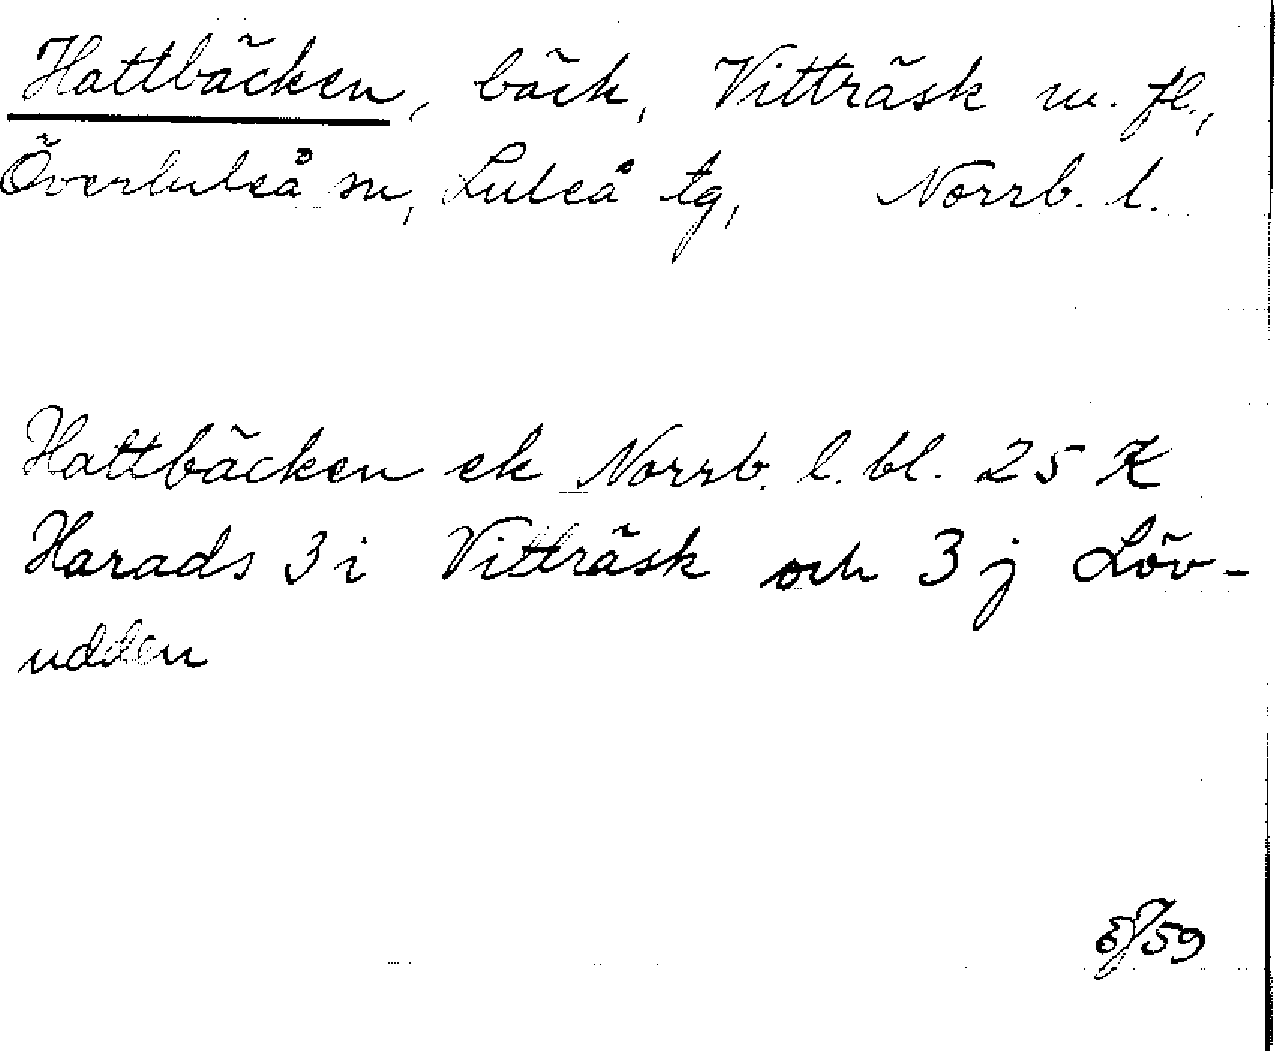 Hattbäcken, bäck, Vitträsk m. fl.,
Överluleå sn, Luleå tg, Norrb. l.
Hattbäcken ek Norrb. l. bl. 25 K
Harads 3 i Vitträsk och 3 j Löv-
udden